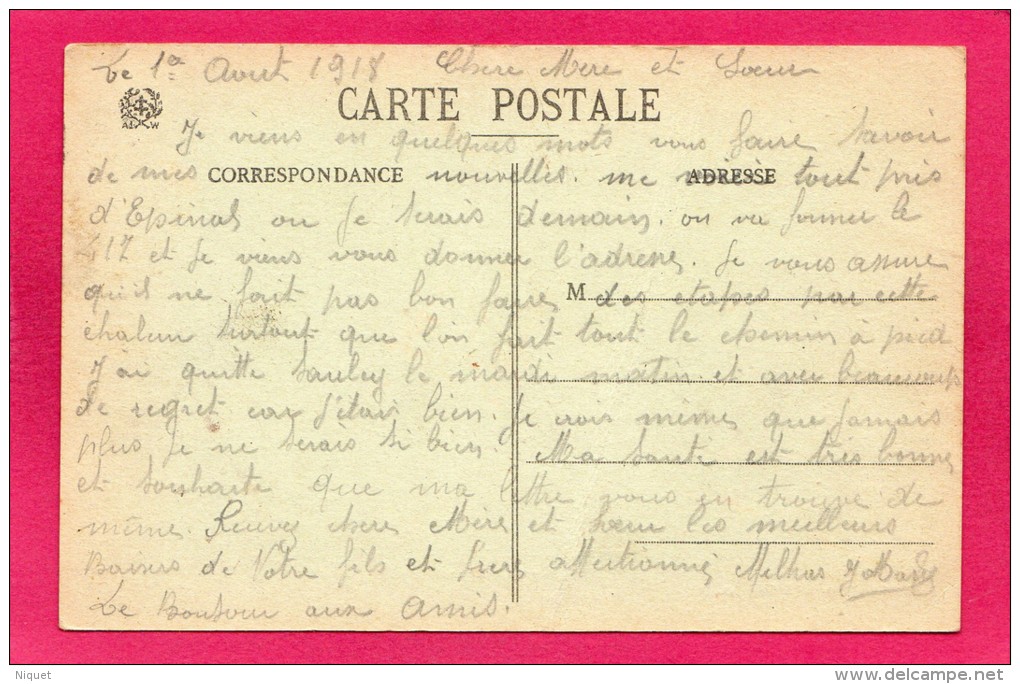 Le 1er Aout 1918 Chere Mere et Soeur
CARTE POSTALE
Je viens en quelques mots vous faire savoir
de mes CORRESPONDANCE nouvelles. me ADRESSE tout pres
d'Epinal ou Je serais demain. on va former le
417 et Je viens vous donner l'adresse. Je vous assure
qu'il ne fait pas bon faire M des etapes par cette
chaleur surtout que l'on fait tout le chemin a pied
J'ai quitte Saulcy le mardi matin et avec beaucoup
de regret car j'etais bien. Je crois même que Jamais
plus Je ne serais si bien. Ma Sante est tres bonne
et souhaite que ma lettre vous en trouve de
même. Recevez chere Mère et Soeur les meilleurs
Baisers de Votre fils et frere affectionné
Le Bonjour aux Amis.
Niquet
delcampe.net